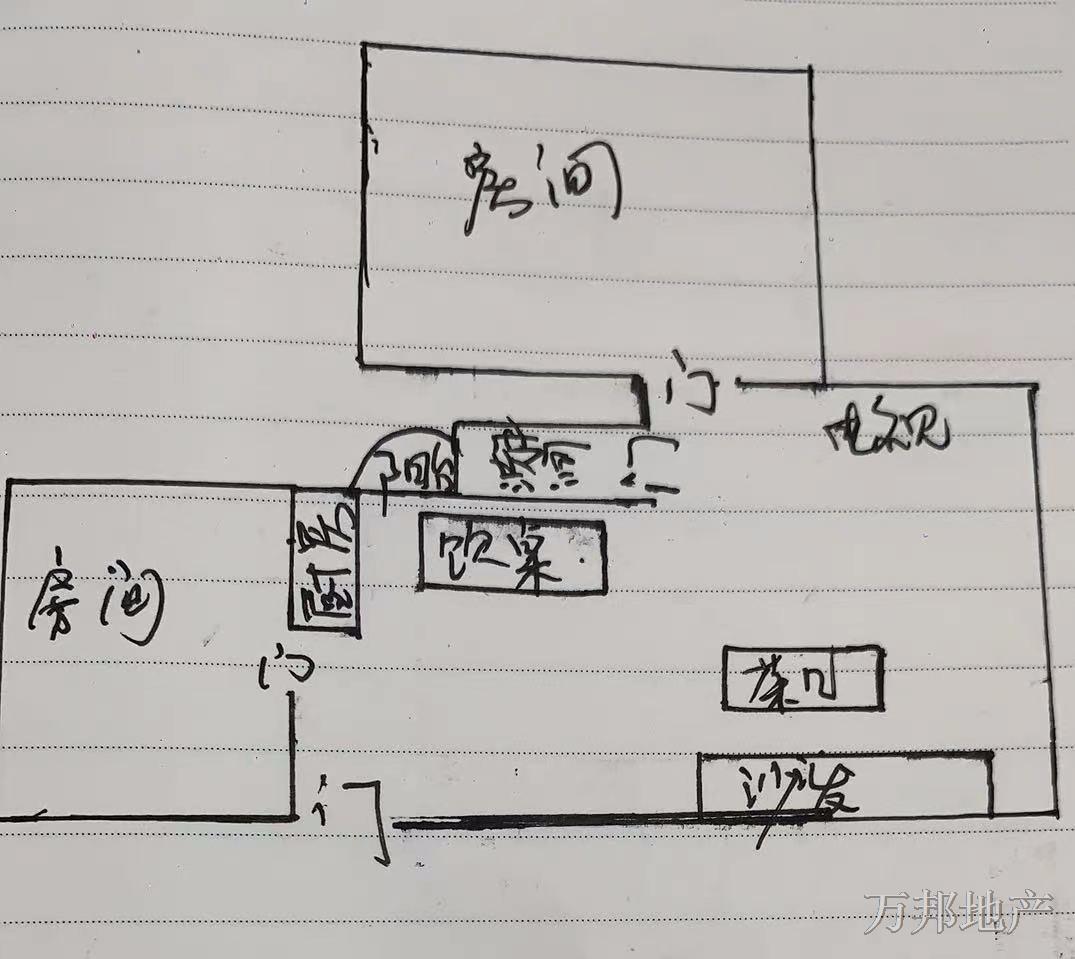 房间
门
电视
阳台
门
厨房
饮
房间
门
茶几
沙发
门
万邦地产